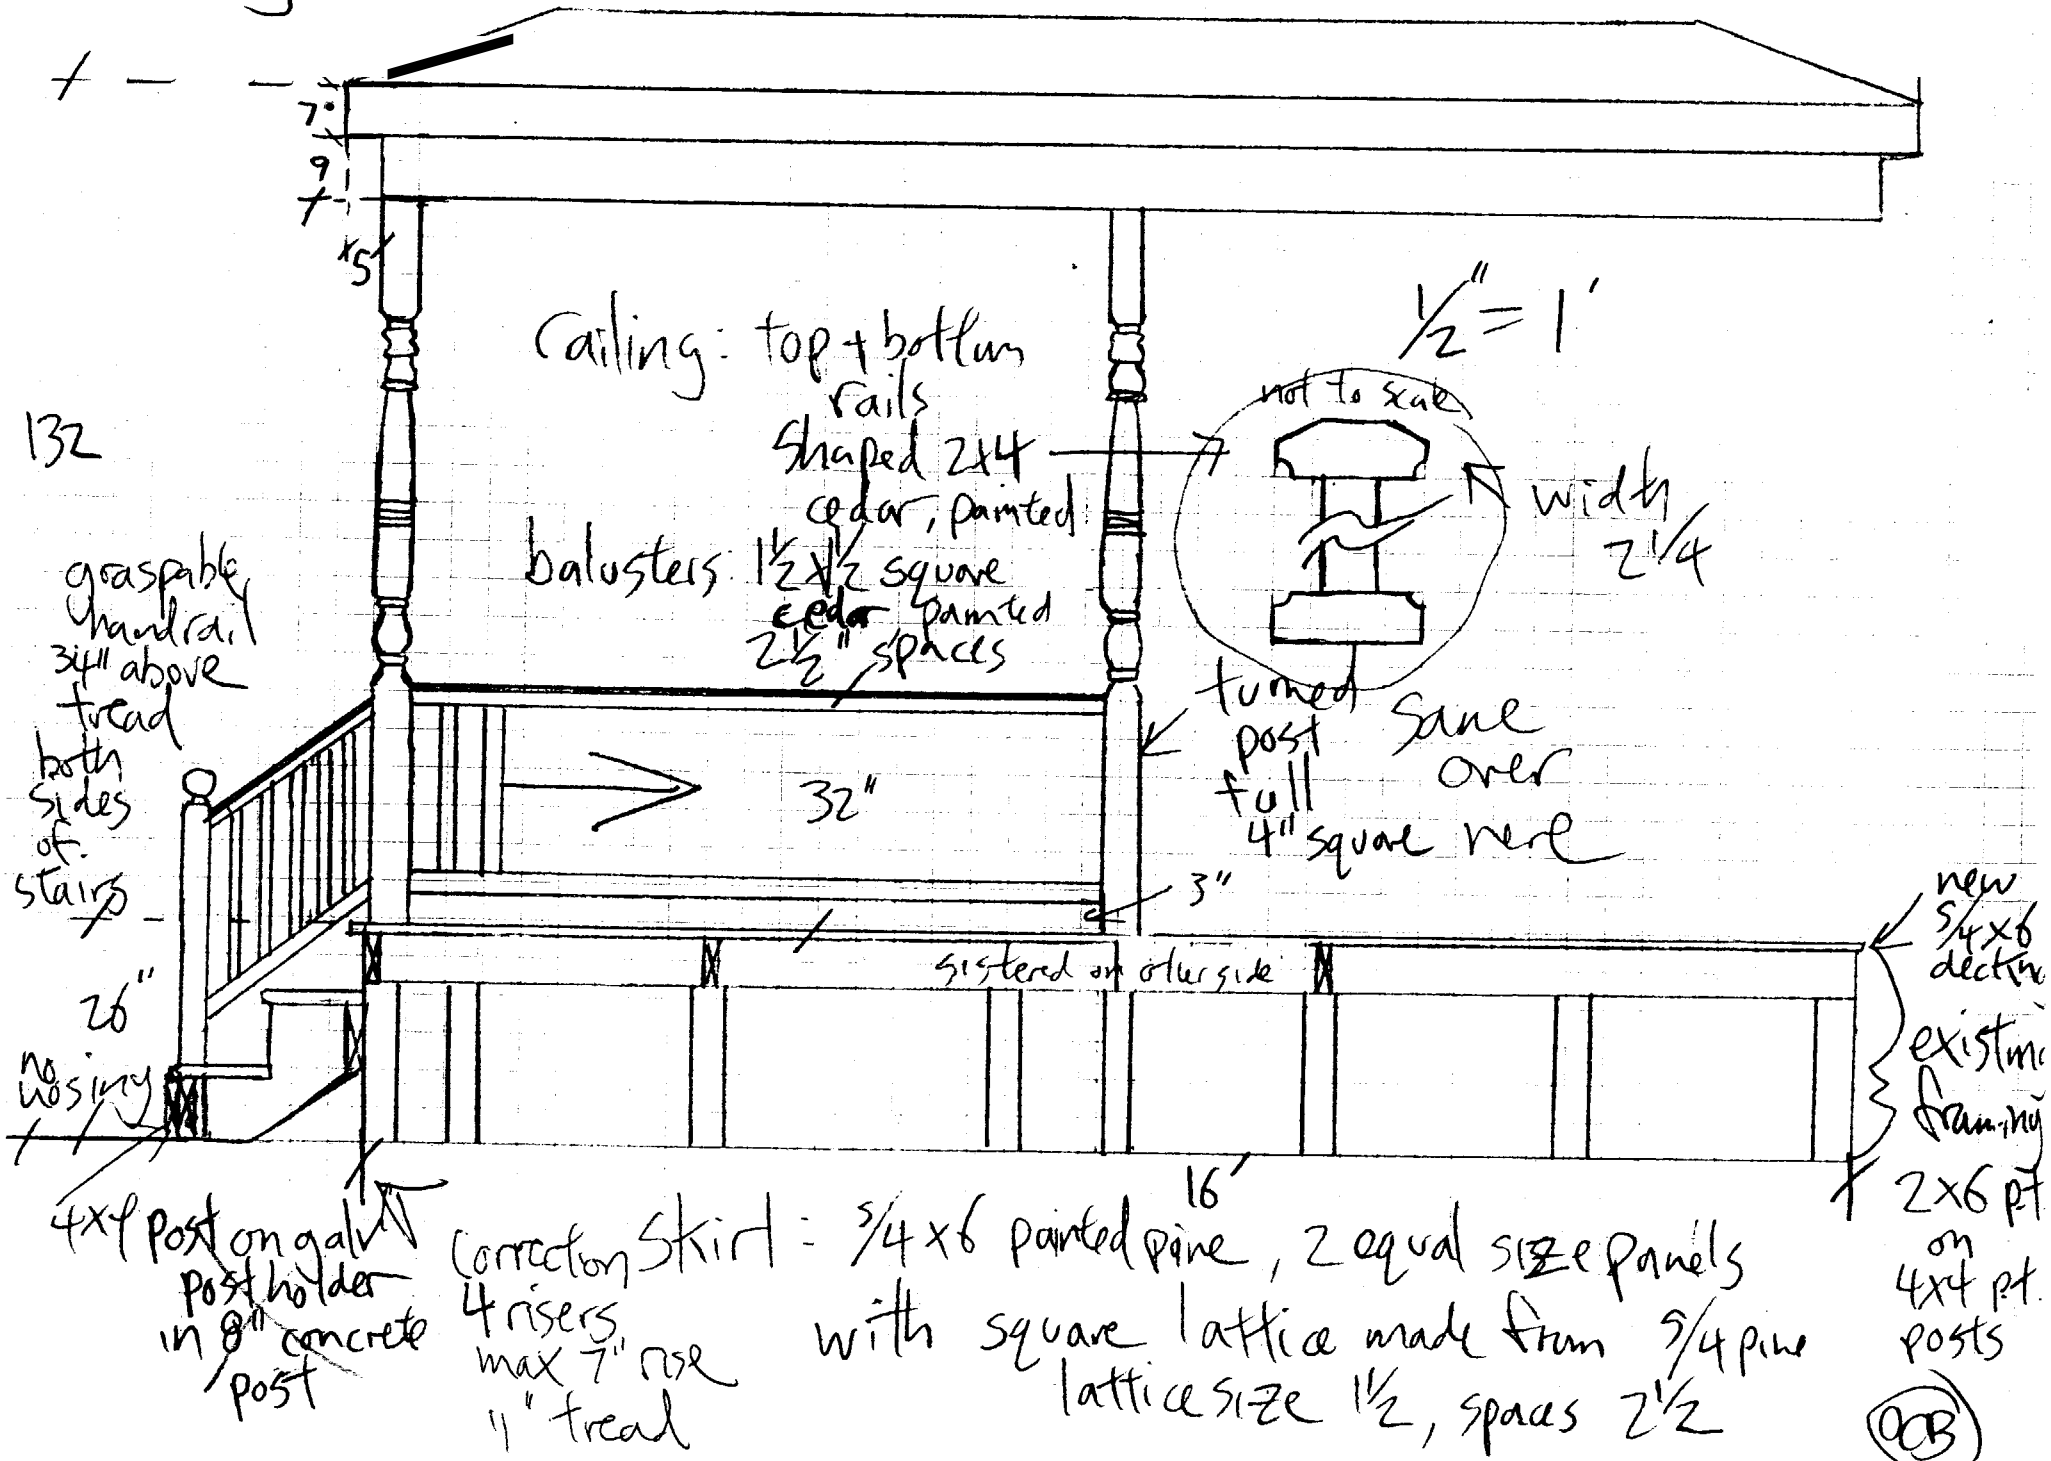 7"
9
5
1/2" = 1'
railing: top + bottom
rails
shaped 2x4
cedar, painted
balusters: 1 1/2 x 1 1/2 square
cedar painted
2 1/2" spaces
not to scale
width
2 1/4
132
graspable
handrail
34" above
tread
both
sides
of
stairs
32"
turned
post
full
4" square
same
over
here
3"
new
5/4x6
decking
sistered on other side
26"
no
nosing
existing
framing
2x6 pt
on
4x4 pt.
posts
16'
4x4 post on galv
post holder
in 8" concrete
post
correction
4 risers
max 7" rise
11" tread
Skirt: 5/4x6 painted pine, 2 equal size panels
with square lattice made from 5/4 pine
lattice size 1 1/2, spaces 2 1/2
OCB